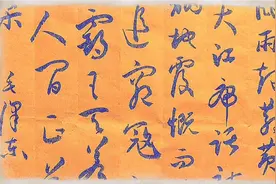 雨起蒼黄
大江虎踞
翻地覆慨而
追窮寇
霸王天若
人间正道
毛澤东